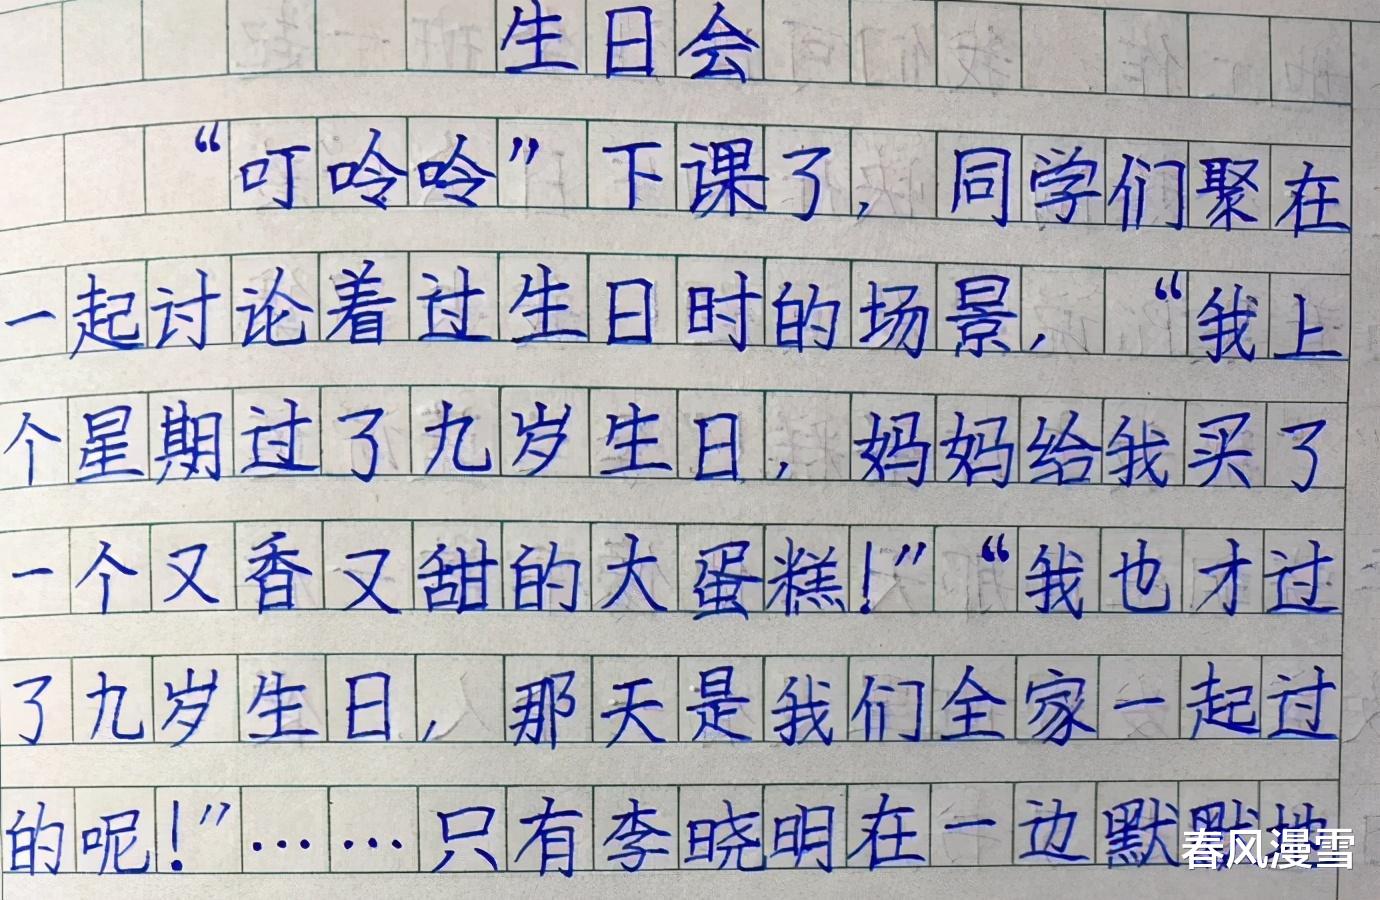 生日会
“叮呤呤”下课了，同学们聚在
一起讨论着过生日时的场景，“我上
个星期过了九岁生日，妈妈给我买了
一个又香又甜的大蛋糕！”“我也才过
了九岁生日，那天是我们全家一起过
的呢！”……只有李晓明在一边默默地
春风漫雪